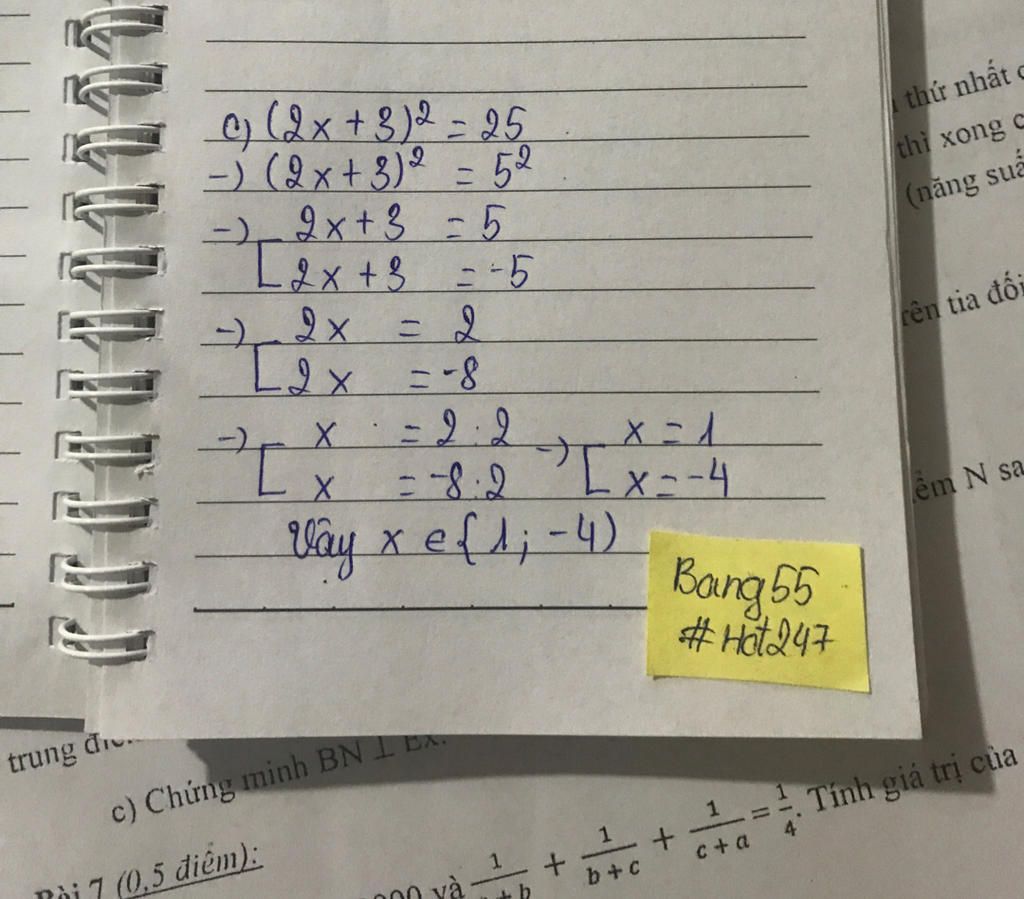 c) (2x + 3)² = 25
-) (2x + 3)² = 5²
-) [ 2x + 3 = 5
2x + 3 = -5
-) [ 2x = 2
2x = -8
-) [ x = 2 : 2 -) [ x = 1
x = -8 : 2 x = -4
Vây x ∈ {1; -4)
Bang55
#Hot247
thứ nhất
thì xong
(năng suấ
rên tia đối
ểm N sa
trung
c) Chứng minh BN ⊥ Ex.
Bài 7 (0,5 điểm):
và 1/ + 1/(b + c) + 1/(c + a) = 1/4. Tính giá trị của